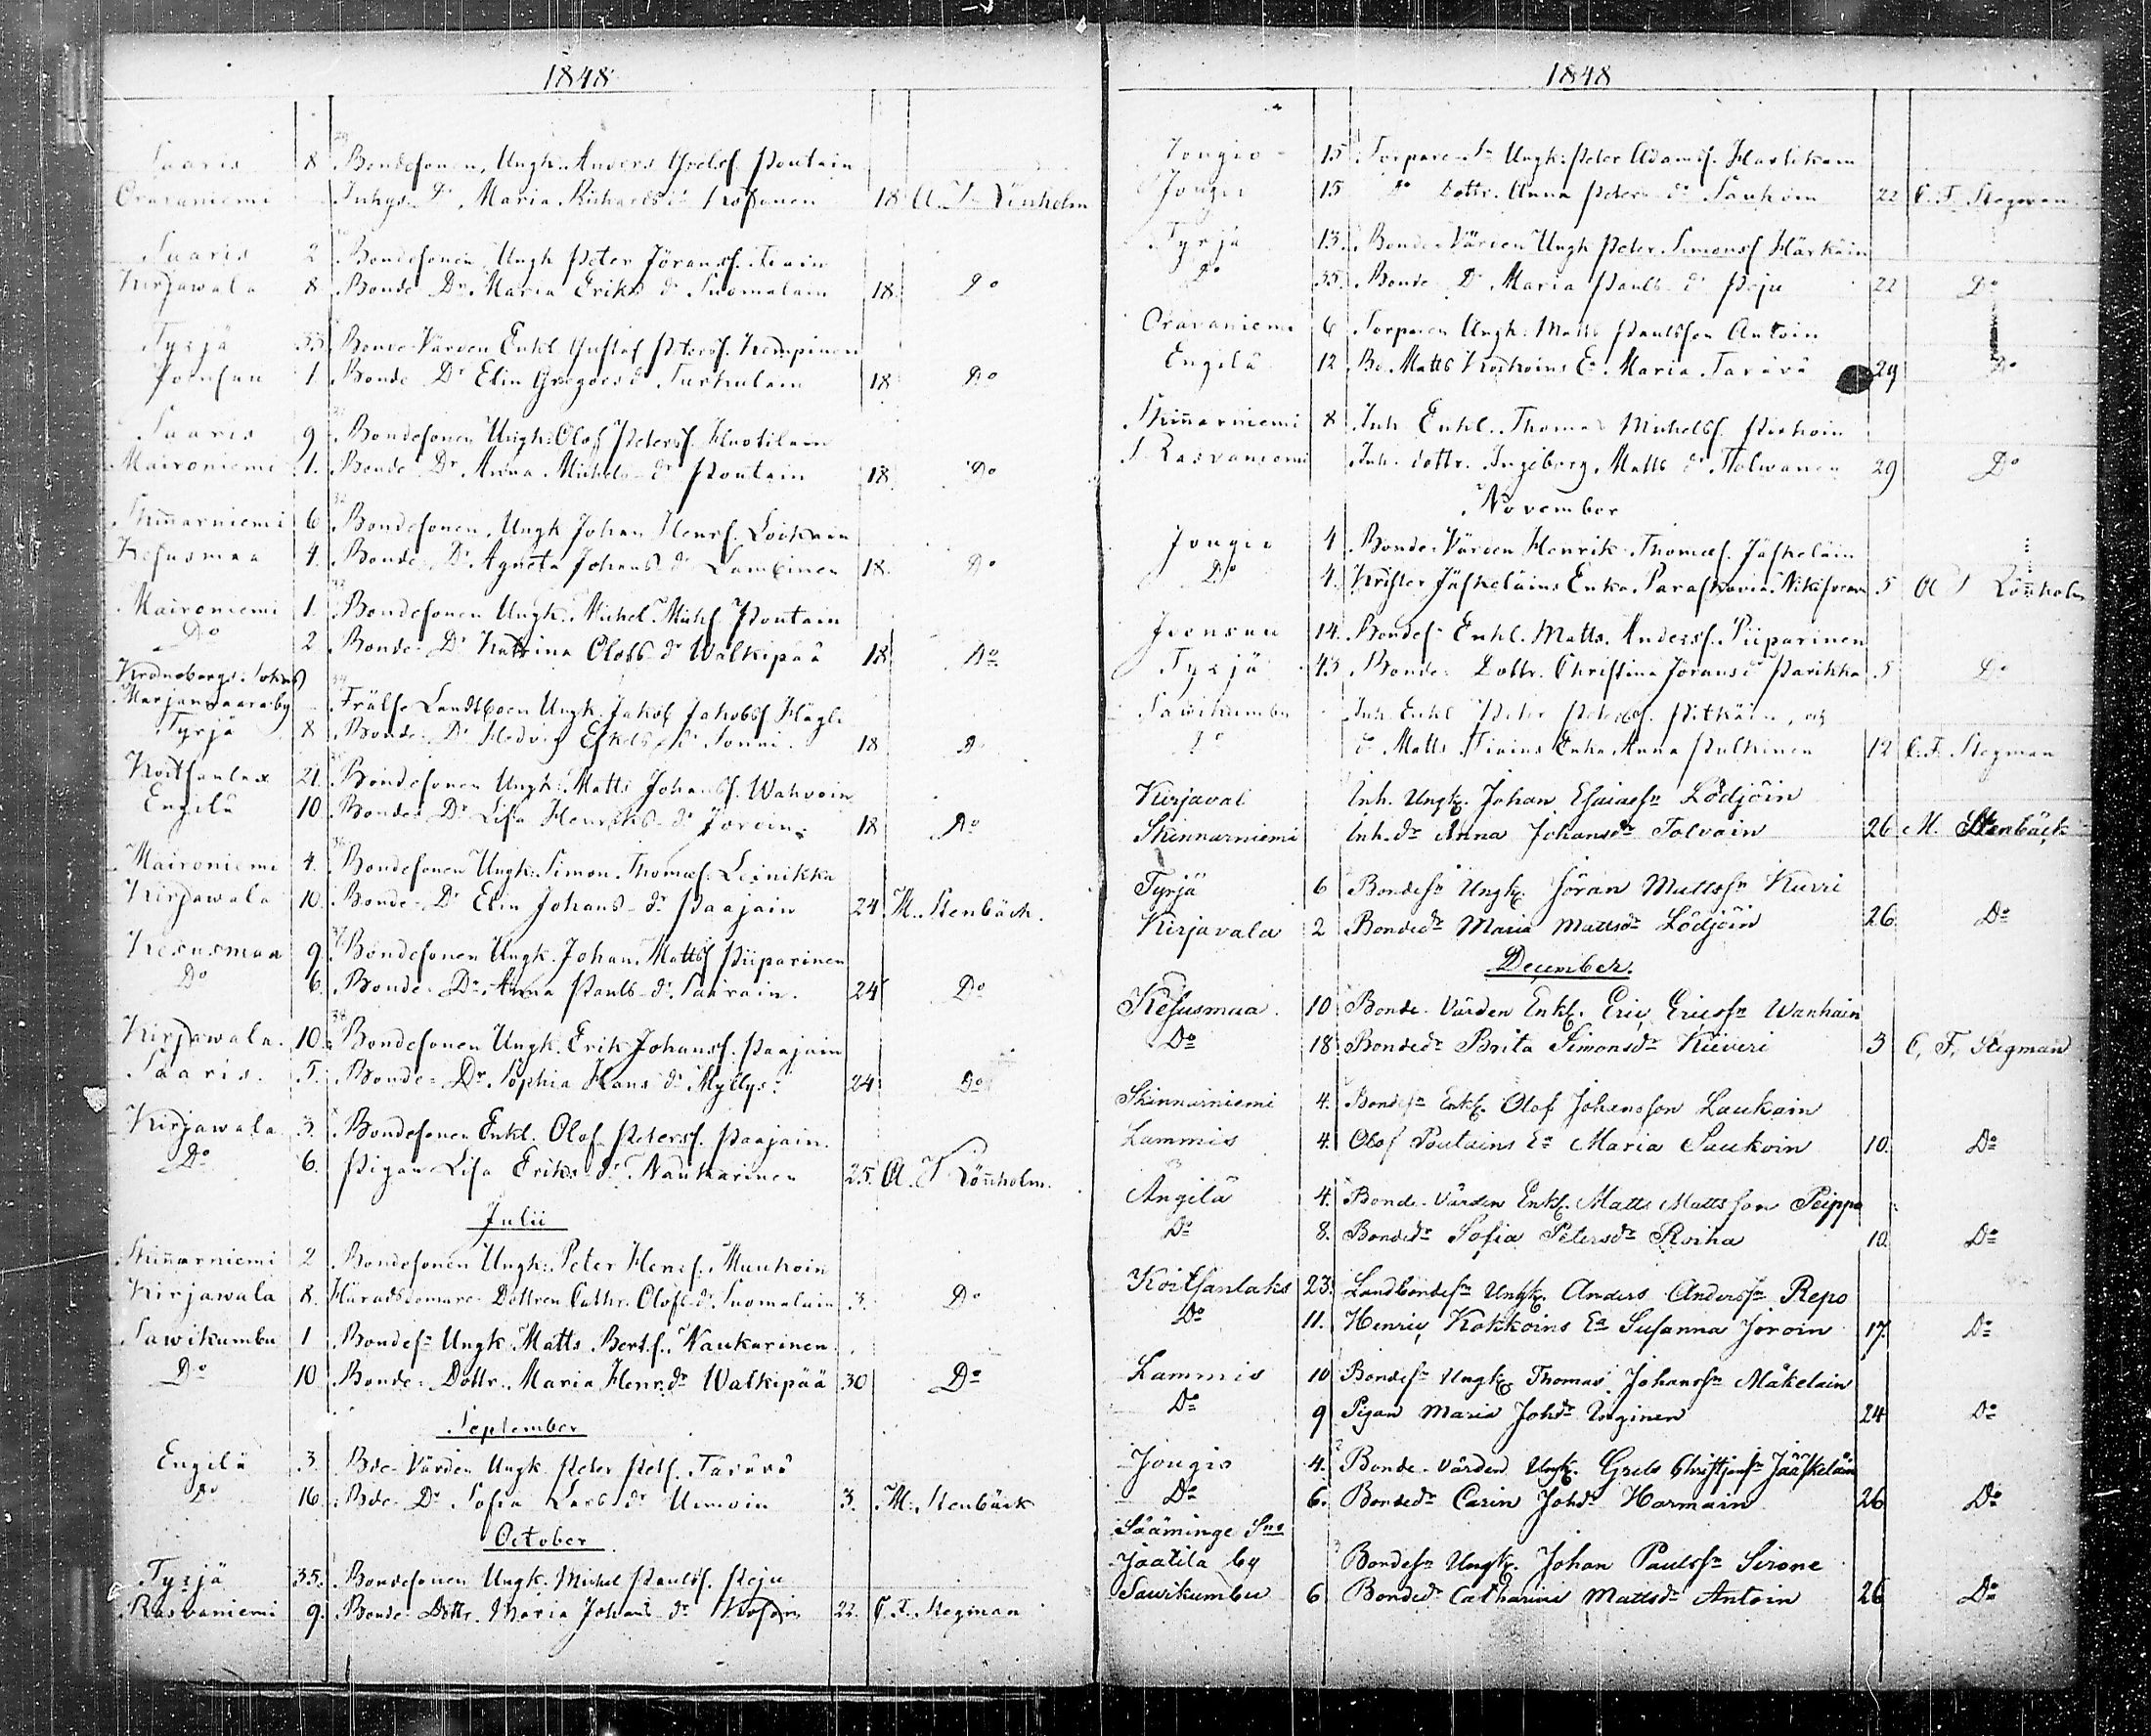 1848
Saaris 8 Bondesonen, Ungk. Anders Poutain
Oravaniemi Inhys. Dr Maria Richardsdr Kosonen 18 A. T. Lönholm
Saaris 2 Bondesonen Ungk Peter Jöransf.
Kirjawala 8 Bonde Dr Maria Eriksdr Suomalain 18 Do
Tyrjä 33 Bonde-Värden Enkl Gustaf Petersf. Kempinen
Joensuu 1 Bonde Dr Elin Gregorsdr Turkulain 18 Do
Saaris 9 Bondesonen Ungk. Olof Petersf. Huotilain
Maironiemi 1. Bonde Dr Anna Michelsdr Poutain 18 Do
Skinnarniemi 6 Bondesonen, Ungk Johan Henrsf. Loikain
Kesusmaa 4. Bonde Dr Agneta Johansdr Lambinen 18. Do
Maironiemi 1. Bondesonen Ungk. Michel Michsf Poutain
Do 2 Bonde Dr Katrina Olofsdr Walkipää 18 Do
Kronobergs Sokns
Marjanwaara by Frälse Landtboen Ungk. Jakob Jakobsf Hägli
Tyrjä 8 Bonde Dr Hedvig Eskelsdr Sonni 18 Do
Koitsanlax 21. Bondesonen Ungk. Matts Johansf. Wahvoin
Engilä 10 Bonde Dr Lisa Henriksdr Joroin 18 Do
Maironiemi 4. Bondesonen Ungk. Simon Thomæsf. Leinikka
Kirjawala 10. Bonde Dr Elin Johansdr Paajain 24 M. Stenbäck.
Kesusmaa 9 Bondesonen Ungk. Johan Mattsf Piiparinen
Do 6. Bonde Dr Anna Paulsdr Sairain. 24 Do
Kirjawala. 10. Bondesonen Ungk. Erik Johansf. Paajain
Saaris. 5. Bonde Dr Sophia Hansdr Myllys. 24 Do
Kirjawala 3. Bondesonen Enkl. Olof Petersf. Paajain.
Do 6. Pigan Lisa Eriksdr Naukarinen 25. A. T. Lönnholm.
Julii
Skinnarniemi 2 Bondesonen Ungk: Peter Henrsf. Muukoin
Kirjawala 8. Häradsdomare Dottren Cathr. Olofsdr Suomalain 3. Do
Sawikumbu 1 Bondesn Ungk Matts Bertsf. Naukarinen.
Do 10 Bonde Dottr. Maria Henrdr Walkipää 30 Do
September
Engilä 3. Bde-Värden Ungk. Peter Petsf. Tarävä
Do 16. Bde Dr Sofia Larsdr Uimoin 3. M. Stenbäck
October
Tyrjä 35. Bondesonen Ungk. Michel Paulsf. Peju
Rasvaniemi 9. Bonde Dottr. Maria Johansdr Kosoin 22. C. F. Stegman
1848
Jongis 15 Torpare Sn Ungk. Peter Adamsf. Hartikain
Jongis 15 Do Dottr. Anna Petersdr Saukoin 22 C. F. Stegman
Tyrjä 13. Bonde-Värden Ungk Peter Simonsf Härkäin
Do 35. Bonde Dr Maria Paulsdr Peju 22 Do
Oravaniemi 6 Torparen Ungk. Matts Paulsson Antoin
Engilä 12 Bo. Matts Kockoins Ea Maria Tarävä 29 Do
Skinnarniemi 8 Inh Enkl. Thomas Michelsf. Pirhoin
S. Rasvaniemi Inh. Dottr. Ingeborg Mattsdr Tolwanen 29 Do
November
Jongis 4 Bonde-Värden Henrik Thomæsf. Jäskeläin
Do 4. Krister Jäskeläins Enka Paraskovia 5 A T Lönnholm
Joensuu 14. Bondes Enkl. Matts Anderssf. Piiparinen
Tyrjä 43 Bonde Dottr. Christina Joransdr Parikka 5 Do
Sawikumbu Inh Enkl Peter Petersf. Pitkäin, och
Do d Matts Tiains Enka Anna Pulkinen 12 C. F. Stegman
Kirjaval Inh. Ungk. Johan Esaiæsn Lödjöin
Skinnarniemi Inh. dr Anna Johansdr Tolvain 26 M. Stenbäck
Tyrjä 6 Bondesn Ungk. Jöran Mattssn Kurri
Kirjavala 2 Bondedr Maria Mattsdr Lödjöin 26 Do
December.
Kesusmaa. 10 Bonde-Värden Enkl. Eric Ericssn Wanhain
Do 18 Bondedr Brita Simonsdr Kiiveri 3 C. F. Stegman
Skinnarniemi 4. Bondesn Enkl. Olof Johansson Laukain
Lammis 4. Olof Poutains Ea Maria Saukoin 10. Do
Ängilä 4. Bonde-Värden Enkl. Matts Mattsson Peippo
Do 8. Bondedr Sofia Petersdr Roiha 10 Do
Koitsanlaks 23. Landbondesn Ungk. Anders Anderssn Repo
Do 11. Henric Kokkoins Ea Susanna Joroin 17. Do
Lammis 10 Bondesn Ungk. Thomas Johanssn Mäkelain
Do 9 Pigan Maria Johdr Unginen 24 Do
Jongis 4. Bonde-Värden Ungk. Grels Christjanssn Jääskeläin
Do 6. Bondedr Carin Johdr Harmain 26 Do
Sääminge Sns
Jaatila by Bondesn Ungk. Johan Paulssn Sirone
Sawikumbu 6 Bondedr Catharina Mattsdr Antoin 26 Do